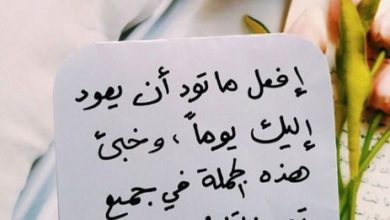 إفعل ما تود أن يعود
إليك يوماً ، وخبئ
هذه الجملة في جميع